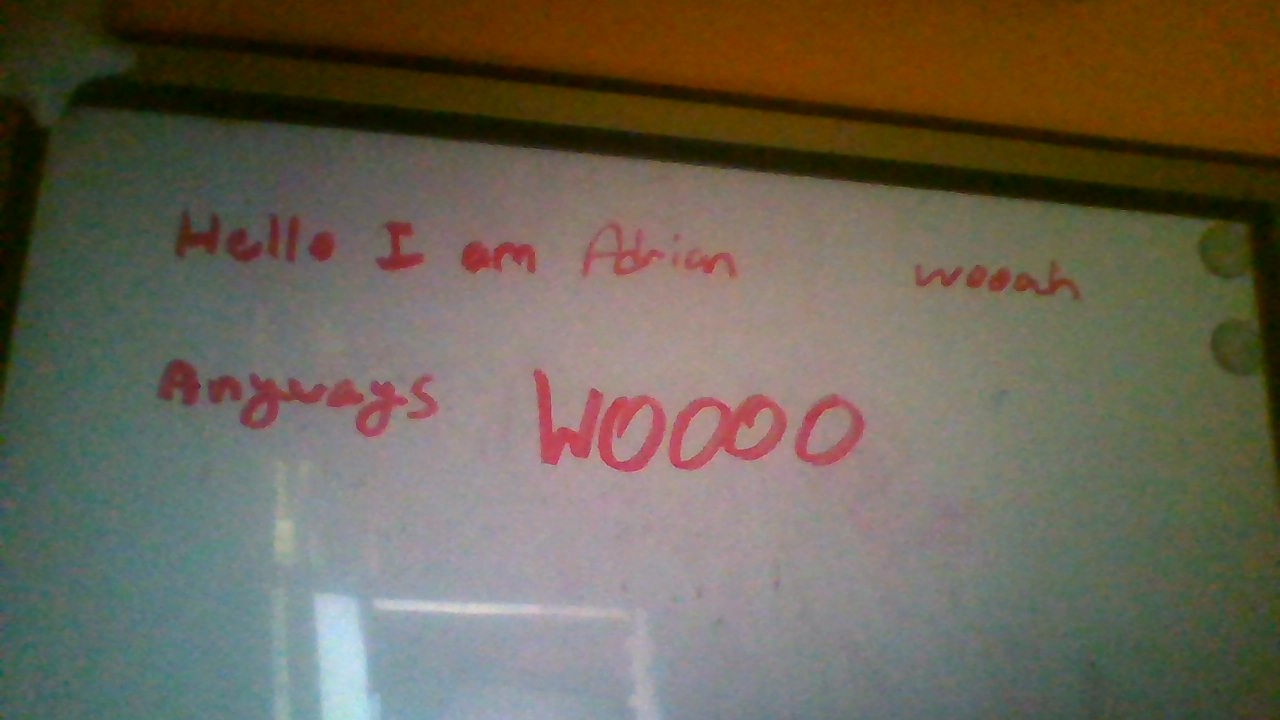 Hello I am Adrian wooah
Anyways WOOOO